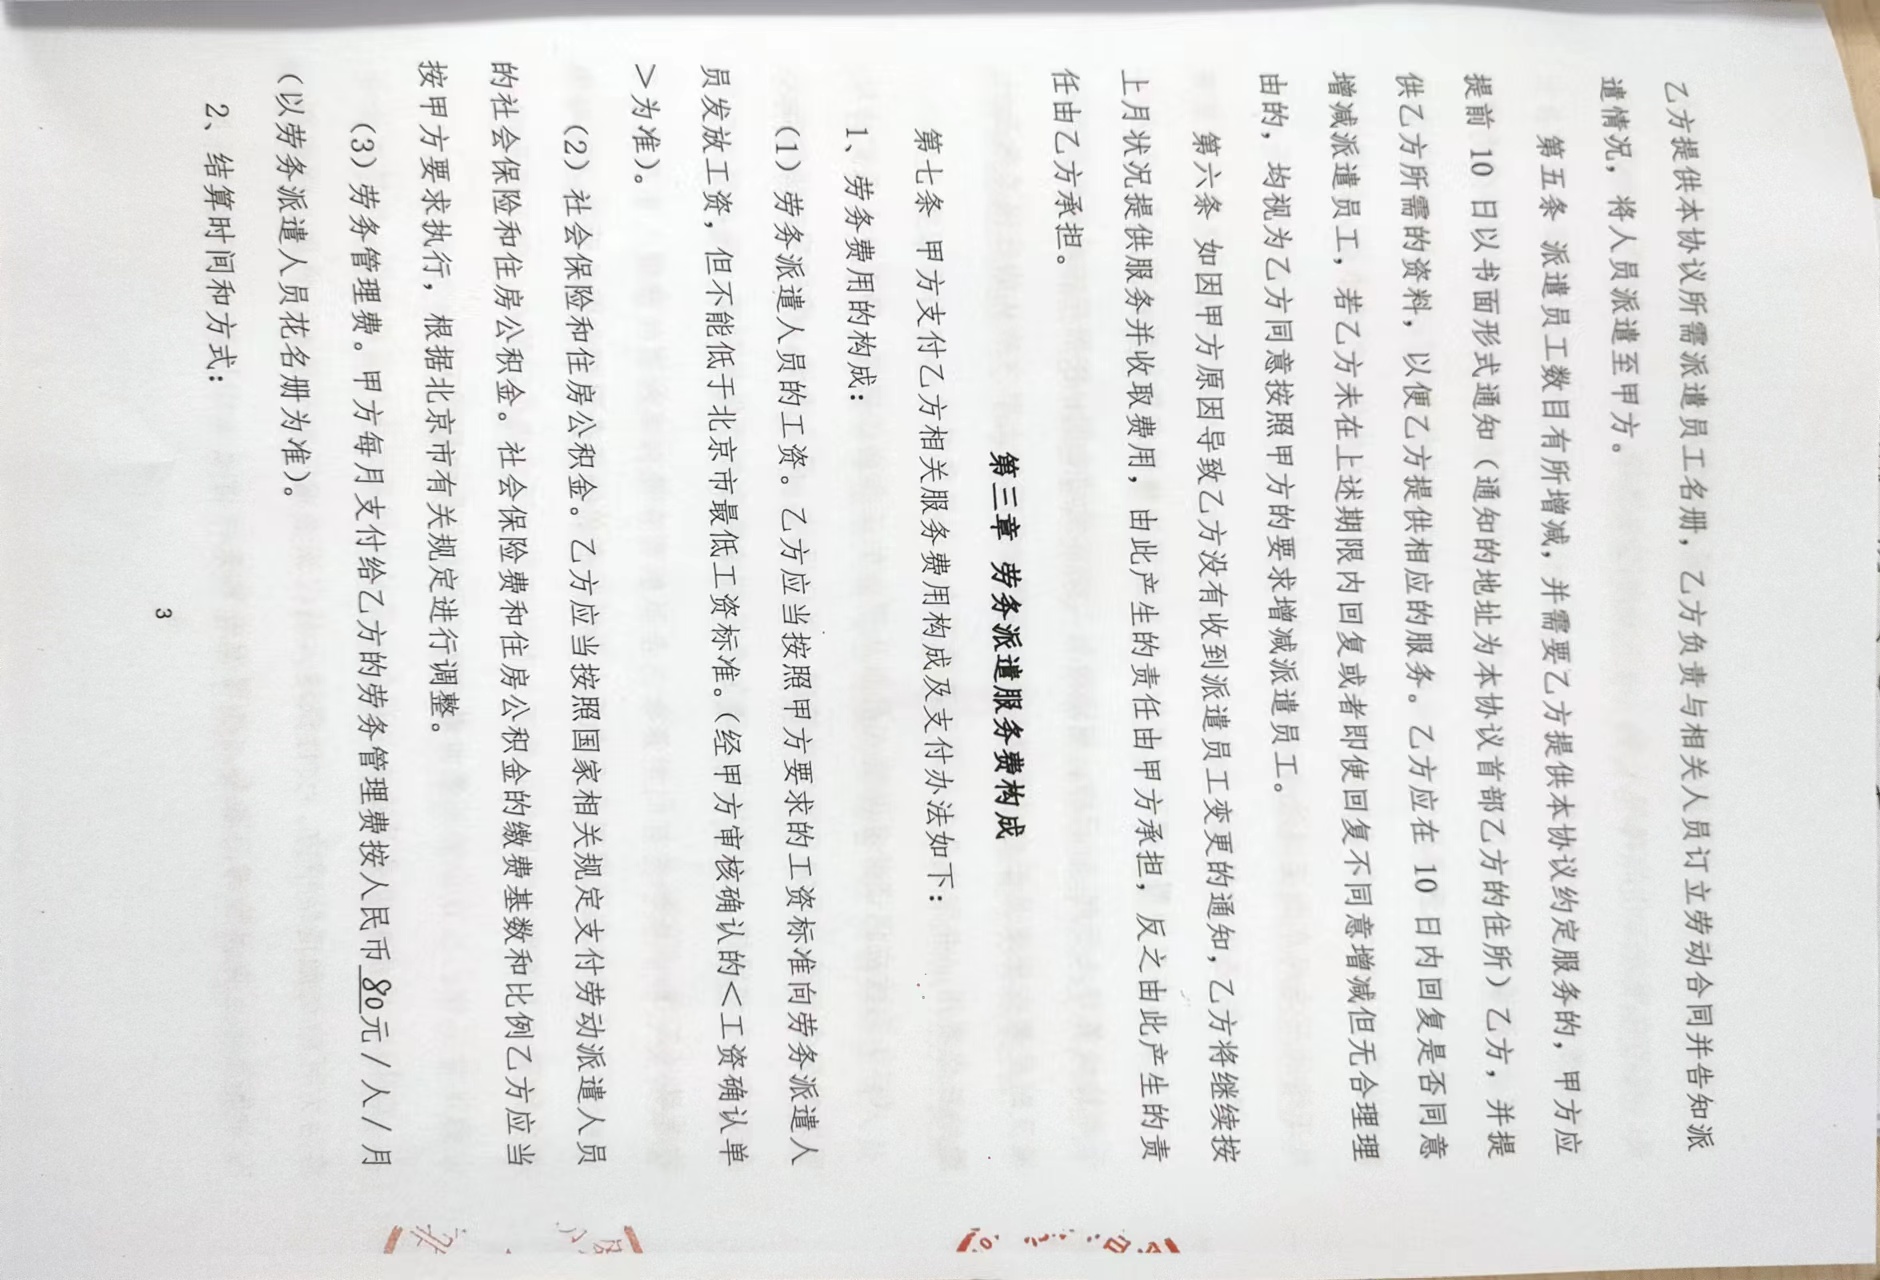 乙方提供本协议所需派遣员工名册，乙方负责与相关人员订立劳动合同并告知派
遣情况，将人员派遣至甲方。
第五条 派遣员工数目有所增减，并需要乙方提供本协议约定服务的，甲方应
提前 10 日以书面形式通知（通知的地址为本协议首部乙方的住所）乙方，并提
供乙方所需的资料，以便乙方提供相应的服务。乙方应在 10 日内回复是否同意
增减派遣员工，若乙方未在上述期限内回复或者即使回复不同意增减但无合理理
由的，均视为乙方同意按照甲方的要求增减派遣员工。
第六条 如因甲方原因导致乙方没有收到派遣员工变更的通知，乙方将继续按
上月状况提供服务并收取费用，由此产生的责任由甲方承担，反之由此产生的责
任由乙方承担。
第三章 劳务派遣服务费构成
第七条 甲方支付乙方相关服务费用构成及支付办法如下：
1、劳务费用的构成：
（1）劳务派遣人员的工资。乙方应当按照甲方要求的工资标准向劳务派遣人
员发放工资，但不能低于北京市最低工资标准。（经甲方审核确认的＜工资确认单
＞为准）。
（2）社会保险和住房公积金。乙方应当按照国家相关规定支付劳动派遣人员
的社会保险和住房公积金。社会保险费和住房公积金的缴费基数和比例乙方应当
按甲方要求执行，根据北京市有关规定进行调整。
（3）劳务管理费。甲方每月支付给乙方的劳务管理费按人民币 80元/人/月
（以劳务派遣人员花名册为准）。
2、结算时间和方式：
3